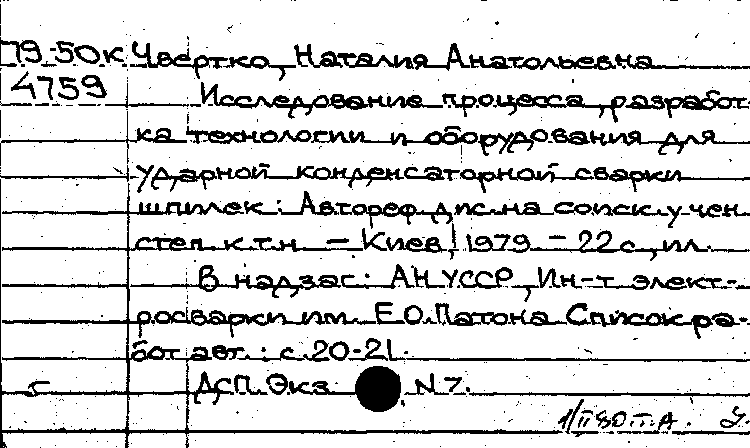 79-50к Чвертко, Наталия Анатольевна
4759 Исследование процесса, разработ
ка технологии и оборудования для
ударной конденсаторной сварки
шпилек: Автореф. дис. на соиск. учен
степ. к.т.н. – Киев, 1979. – 22с., ил.
В надзаг.: АН УССР, Ин-т элект-
росварки им. Е.О.Патона Список ра-
бот авт.: с.20-21.
5 ДСП. Экз. N 7.
1/II 80